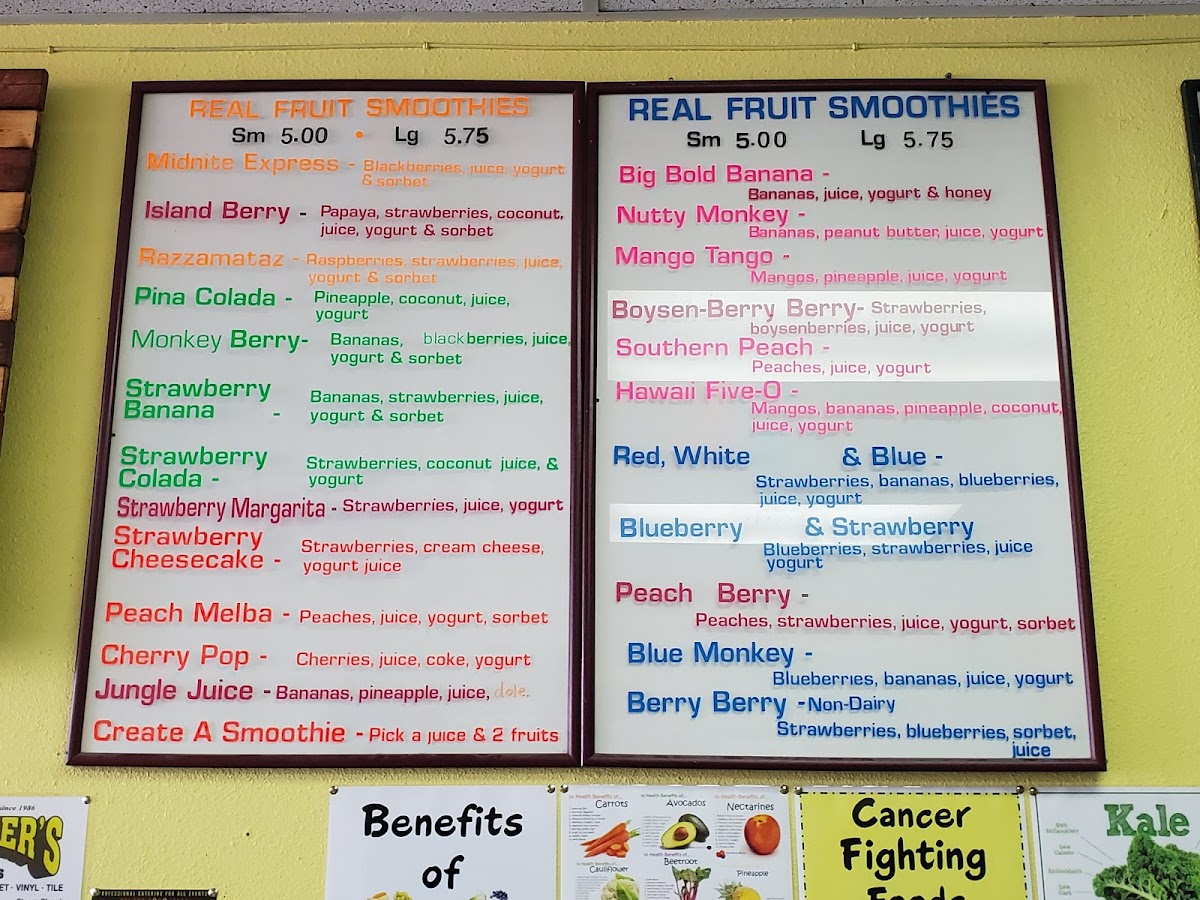 REAL FRUIT SMOOTHIES
Sm 5.00 • Lg 5.75
Midnite Express - Blackberries, juice, yogurt
& sorbet
Island Berry - Papaya, strawberries, coconut,
juice, yogurt & sorbet
Razzamataz - Raspberries, strawberries, juice,
yogurt & sorbet
Pina Colada - Pineapple, coconut, juice,
yogurt
Monkey Berry- Bananas, blackberries, juice,
yogurt & sorbet
Strawberry
Banana - Bananas, strawberries, juice,
yogurt & sorbet
Strawberry
Colada - Strawberries, coconut juice, &
yogurt
Strawberry Margarita - Strawberries, juice, yogurt
Strawberry
Cheesecake - Strawberries, cream cheese,
yogurt juice
Peach Melba - Peaches, juice, yogurt, sorbet
Cherry Pop - Cherries, juice, coke, yogurt
Jungle Juice - Bananas, pineapple, juice, dole.
Create A Smoothie - Pick a juice & 2 fruits
REAL FRUIT SMOOTHIES
Sm 5.00 Lg 5.75
Big Bold Banana -
Bananas, juice, yogurt & honey
Nutty Monkey -
Bananas, peanut butter, juice, yogurt
Mango Tango -
Mangos, pineapple, juice, yogurt
Boysen-Berry Berry- Strawberries,
boysenberries, juice, yogurt
Southern Peach -
Peaches, juice, yogurt
Hawaii Five-O -
Mangos, bananas, pineapple, coconut,
juice, yogurt
Red, White & Blue -
Strawberries, bananas, blueberries,
juice, yogurt
Blueberry & Strawberry
Blueberries, strawberries, juice
yogurt
Peach Berry -
Peaches, strawberries, juice, yogurt, sorbet
Blue Monkey -
Blueberries, bananas, juice, yogurt
Berry Berry -Non-Dairy
Strawberries, blueberries, sorbet,
juice
since 1986
ER'S
ET · VINYL · TILE
PROFESSIONAL CATERING FOR ALL EVENTS
Benefits
of
10 Health Benefits of...
Carrots
10 Health Benefits of...
Avocados
10 Health Benefits of...
Nectarines
10 Health Benefits of...
Cauliflower
10 Health Benefits of...
Beetroot
Pineapple
Cancer
Fighting
Foods
Kale